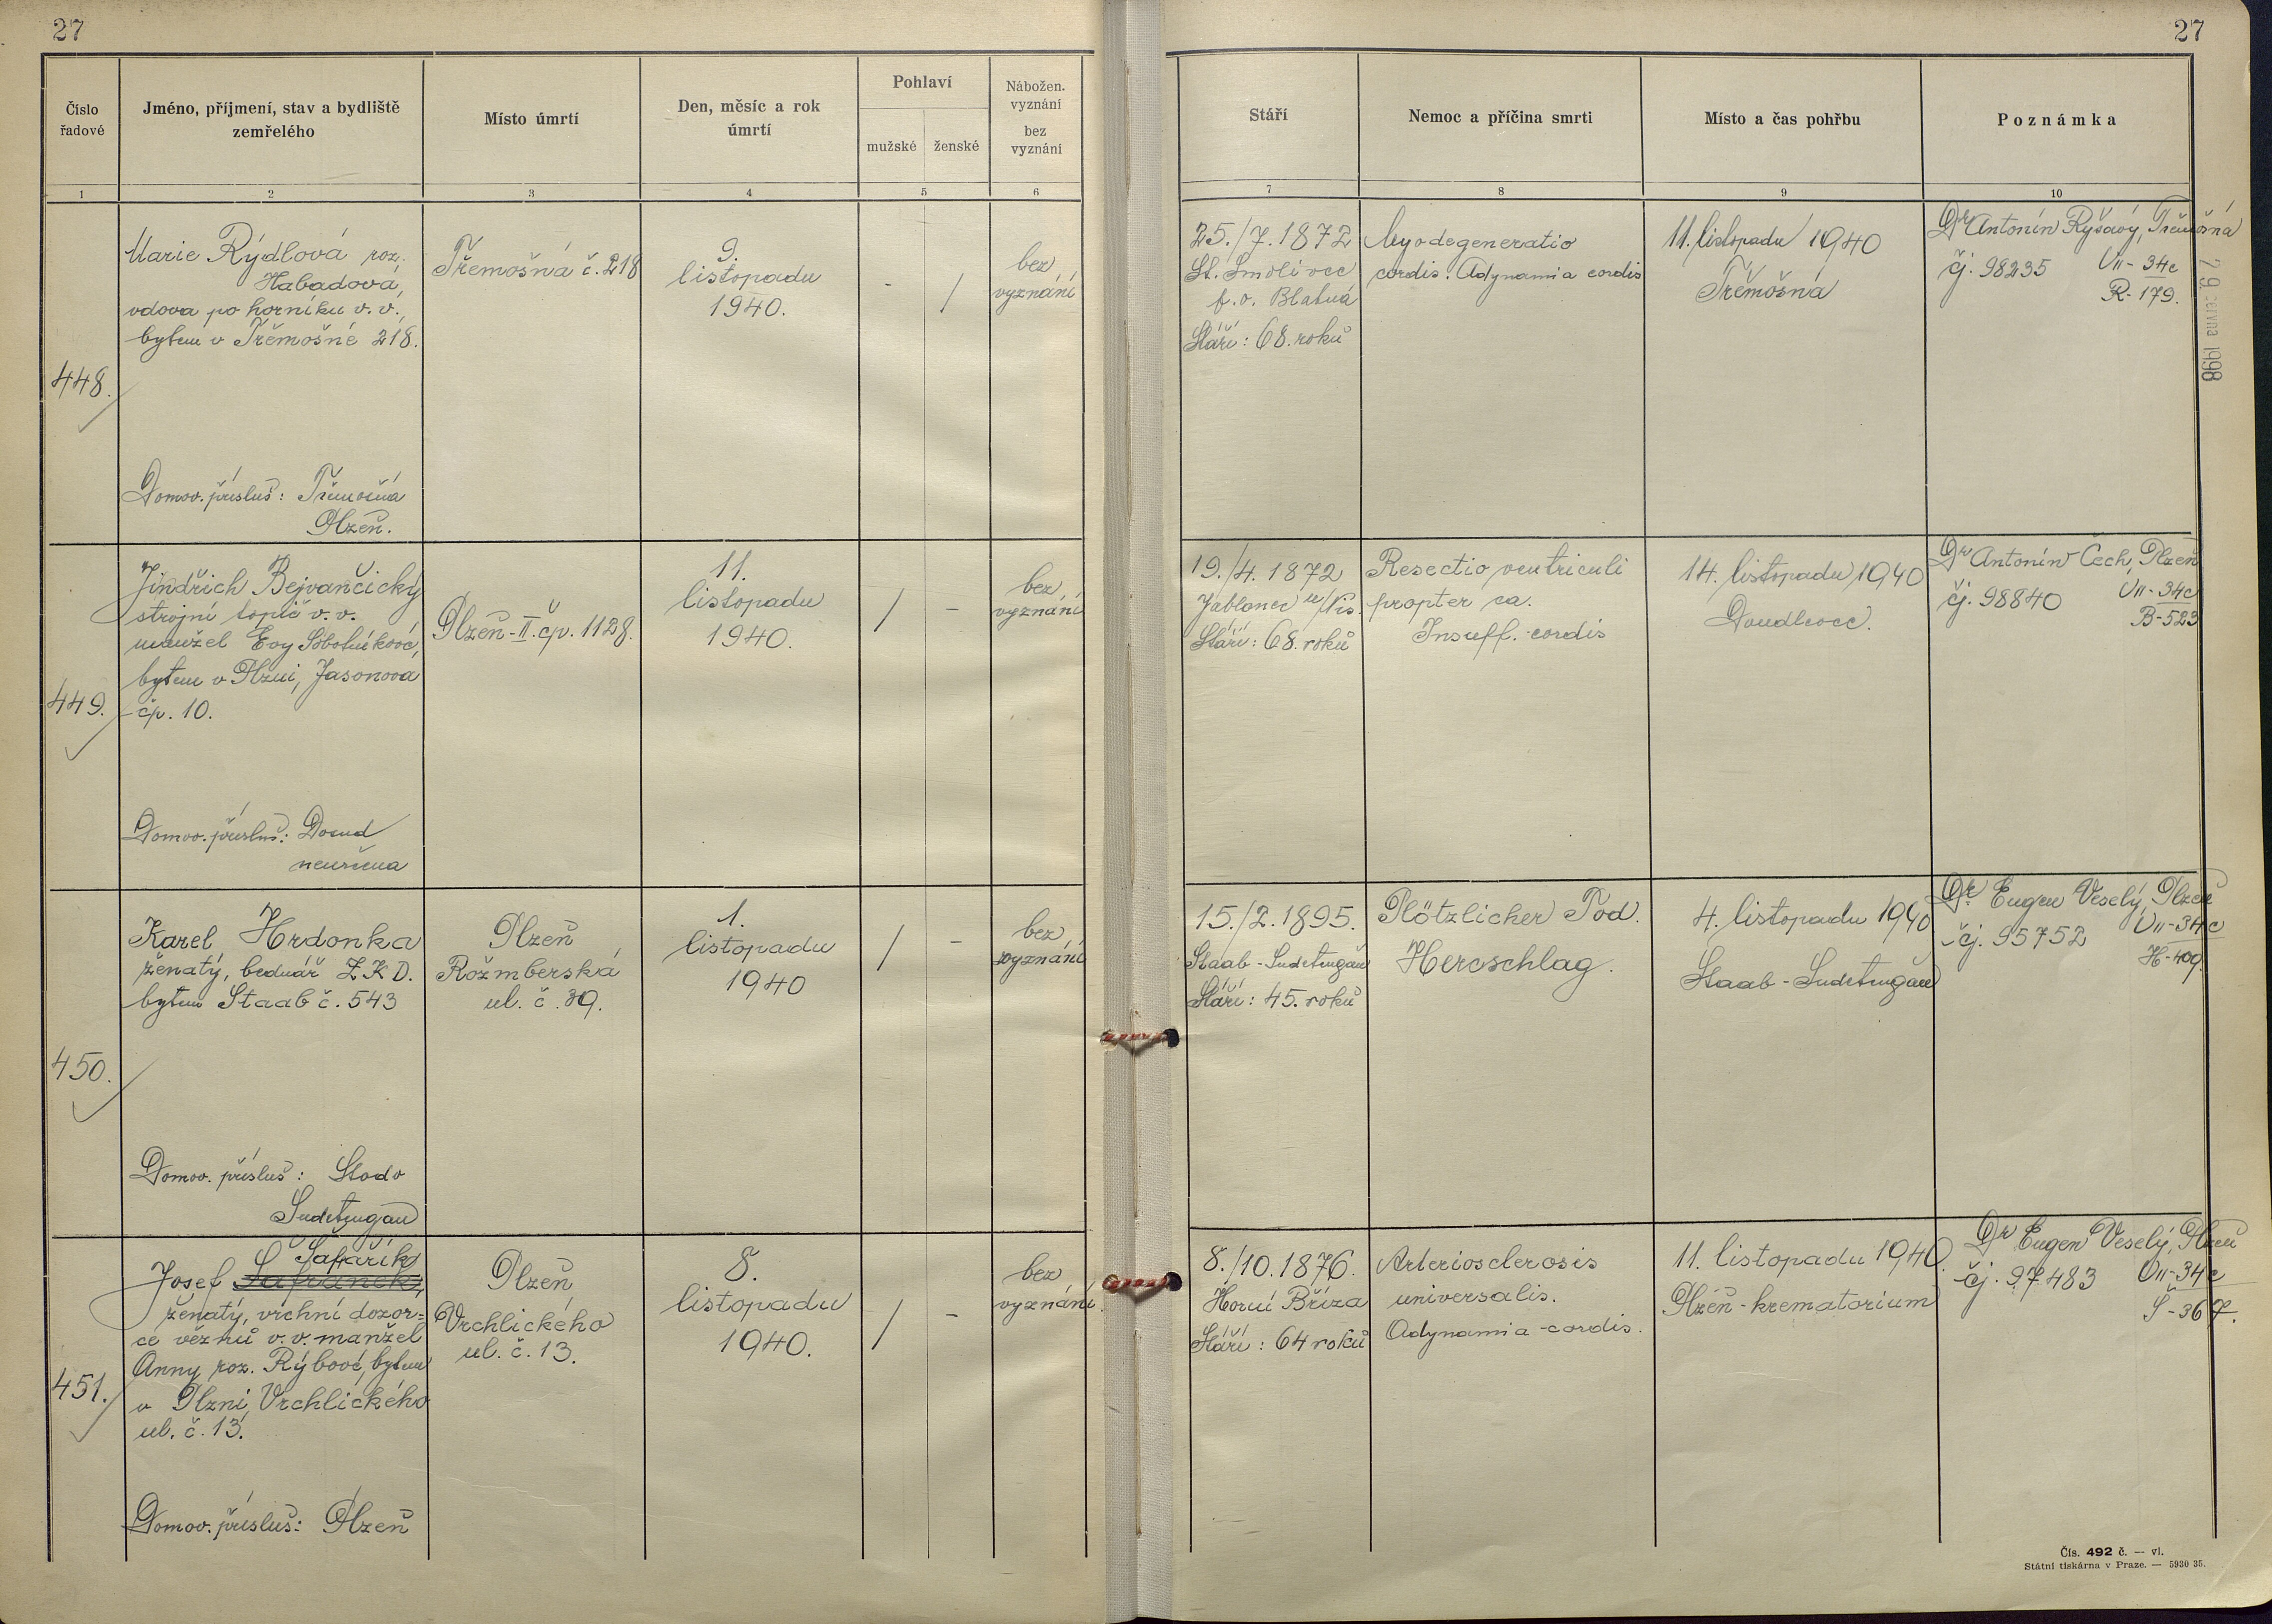 27
27
Číslo řadové
Jméno, příjmení, stav a bydliště zemřelého
Místo úmrtí
Den, měsíc a rok úmrtí
Pohlaví
mužské
ženské
Nábožen. vyznání
bez vyznání
Stáří
Nemoc a příčina smrti
Místo a čas pohřbu
Poznámka
1
2
3
4
5
6
7
8
9
10
448.
Marie Rýdlová roz.
Habadová,
vdova po horníku v. v.,
bytem v Třemošné 218.
Domov. přísluš: Třemošná
Plzeň.
Třemošná č. 218
9.
listopadu
1940.
-
/
bez
vyznání
25./7.1872
St. Smolivec
p. o. Blatná
Stáří: 68. roků
Myodegeneratio
cordis. Adynamia cordis
11. listopadu 1940
Třemošná
Dr Antonín Ryšavý, Třemošná
čj. 98235
VII-34c
R-179.
29. června 1998
449.
Jindřich Bejvančický
strojní topič v. v.
manžel Evy Sobotníkové,
bytem v Plzni, Jasonova
čp. 10.
Domov. přísluš: Dosud
neurčena
Plzeň-II. čp. 1128.
11.
listopadu
1940.
/
-
bez
vyznání
19./4.1872
Jablonec n/Nis.
Stáří: 68. roků
Resectio ventriculi
propter ca.
Insuff. cordis
14. listopadu 1940
Doudlevce.
Dr Antonín Čech, Plzeň
čj. 98840
VII-34c
B-523
450.
Karel Hrdonka
ženatý, bednář Z.K.D.
bytem Staab č. 543
Domov. přísluš: Stodo
Sudetengau
Plzeň
Rožmberská
ul. č. 39.
1.
listopadu
1940
/
-
bez
vyznání
15./2.1895.
Staab-Sudetengau
Stáří: 45. roků
Plötzlicher Tod.
Hercschlag.
4. listopadu 1940
Staab-Sudetengau
Dr. Eugen Veselý, Plzeň
čj. 95752
VII-34c
H-409.
451.
Šafařík
Josef Šafránek,
ženatý, vrchní dozor=
ce vězňů v. v. manžel
Anny roz. Rýbové, bytem
v Plzni, Vrchlického
ul. č. 13.
Domov. přísluš: Plzeň
Plzeň
Vrchlického
ul. č. 13.
8.
listopadu
1940.
/
-
bez
vyznání.
8./10.1876.
Horní Bříza
Stáří: 64 roků
Arteriosclerosis
universalis.
Adynamia-cordis.
11. listopadu 1940.
Plzeň-krematorium
Dr Eugen Veselý, Plzeň
čj. 97483
VII-34c
Š-367.
Čís. 492 č. — vl.
Státní tiskárna v Praze. — 5930 35.